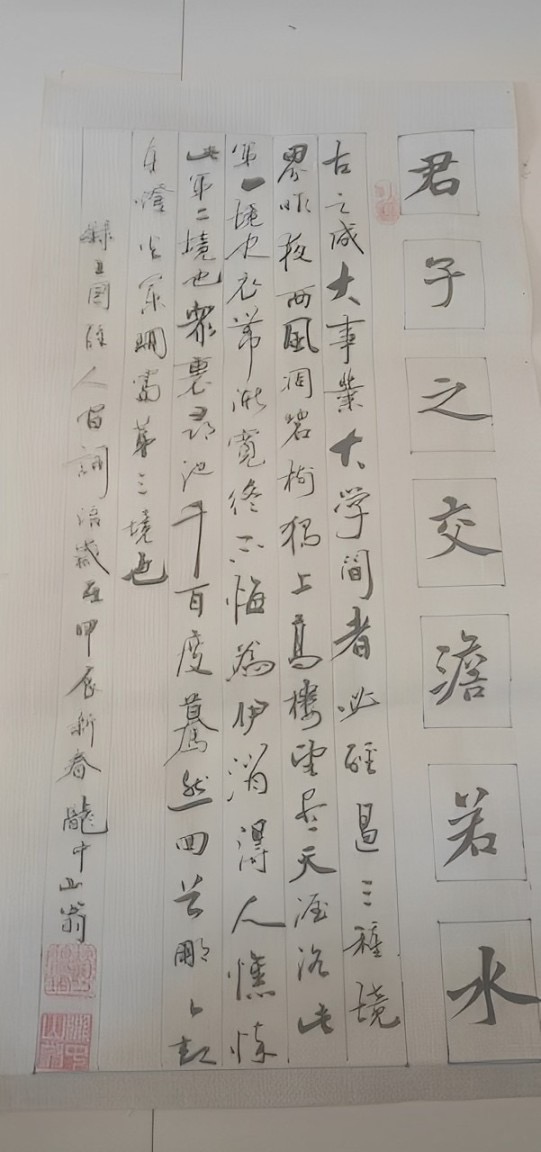 君子之交澹若水
古之成大事業大学问者必經過三種境
界昨夜西風凋碧樹獨上高樓望尽天涯路此
第一境也衣带漸寬終不悔為伊消得人憔悴
此第二境也眾裏尋他千百度驀然回首那人却
在燈火闌珊處第三境也
錄王国維人間詞話歲在甲辰新春龍中山翁